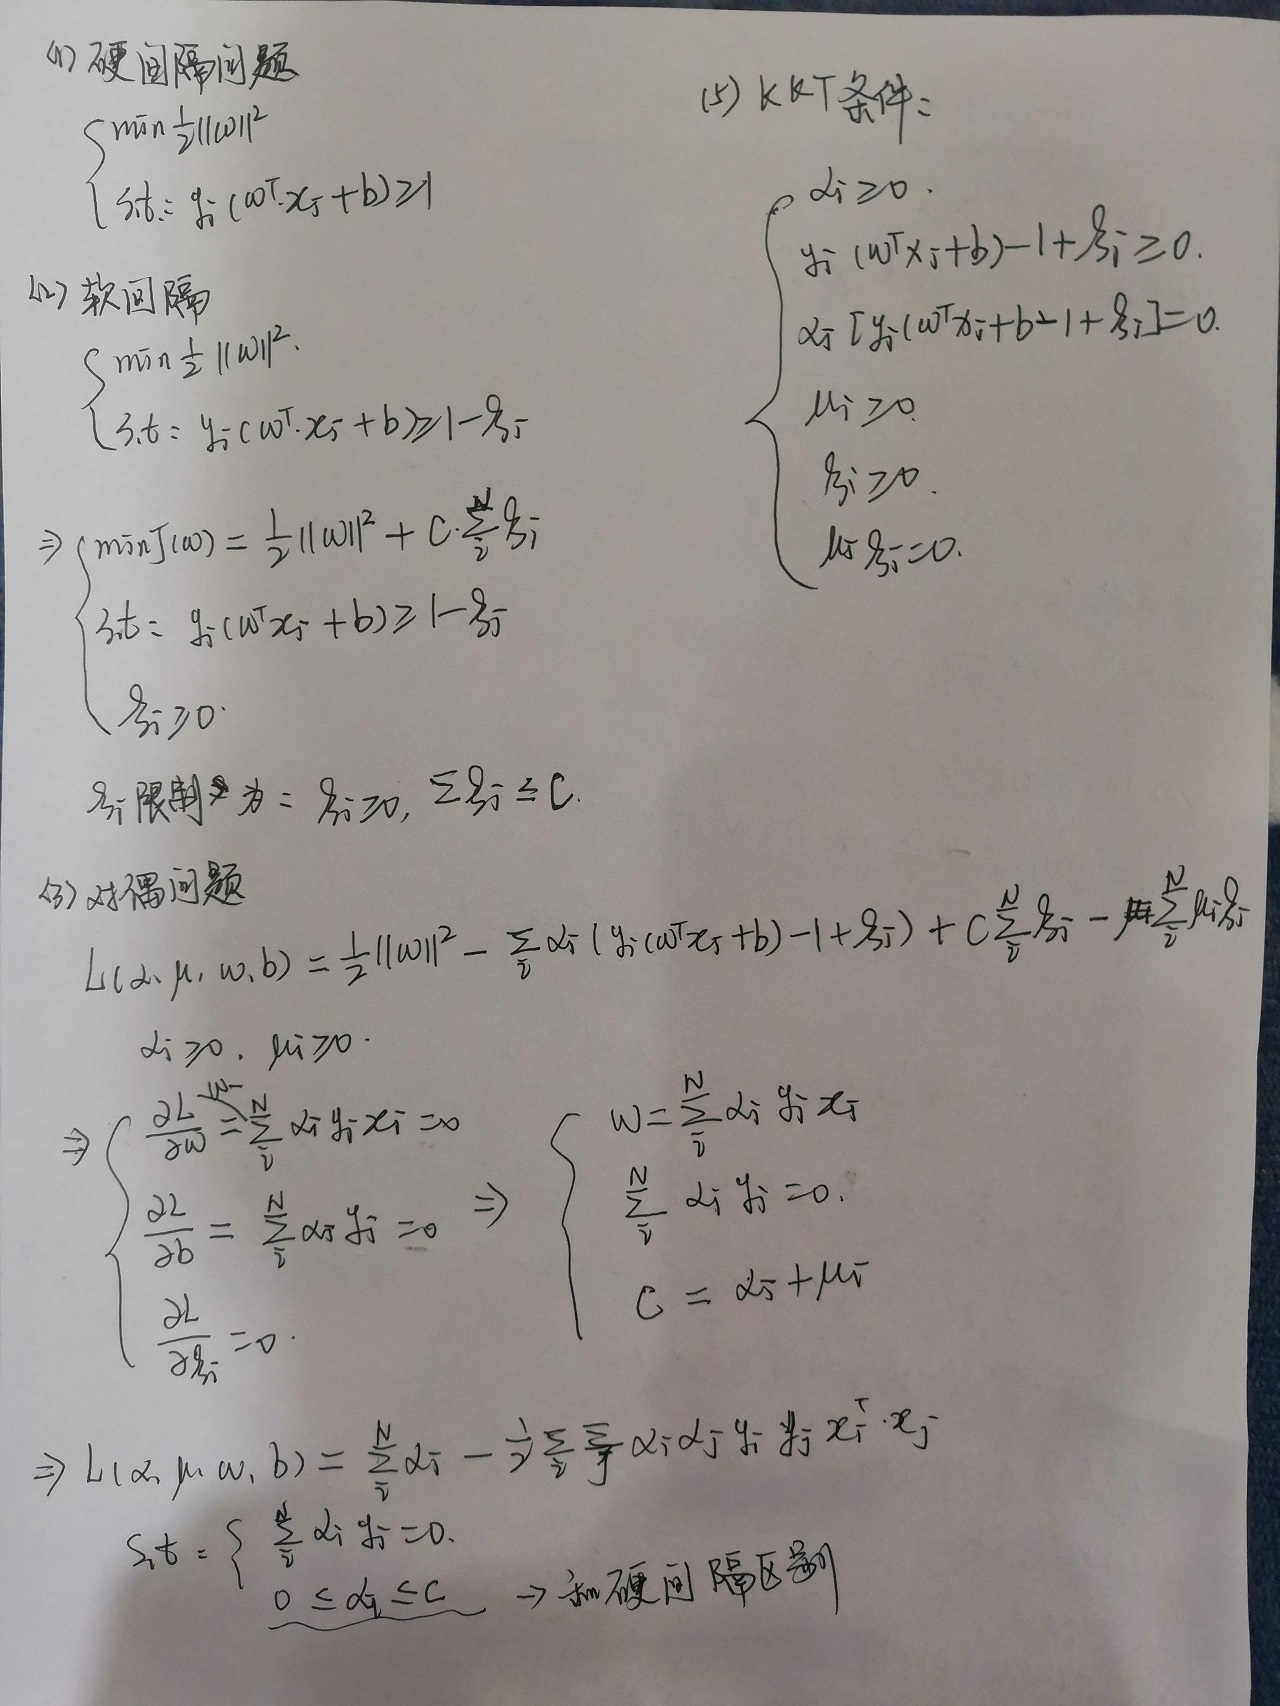 (1) 硬间隔问题
min ½||ω||²
s.t: yᵢ(ωᵀ·xᵢ+b)≥1
(2) 软间隔
min ½||ω||².
s.t: yᵢ(ωᵀ·xᵢ+b)≥1-ξᵢ
⇒ min J(ω) = ½||ω||² + C·∑ᵢᴺ ξᵢ
s.t: yᵢ(ωᵀxᵢ+b)≥1-ξᵢ
ξᵢ≥0.
ξᵢ限制为: ξᵢ≥0, ∑ξᵢ≤C.
(3) 对偶问题
L(α, μ, ω, b) = ½||ω||² - ∑ᵢ αᵢ(yᵢ(ωᵀxᵢ+b)-1+ξᵢ) + C∑ᵢᴺ ξᵢ - ∑ᵢᴺ μᵢξᵢ
αᵢ≥0, μᵢ≥0.
⇒ ∂L/∂ω = W- ∑ᵢᴺ αᵢyᵢxᵢ=0
∂L/∂b = ∑ᵢᴺ αᵢyᵢ=0
∂L/∂ξᵢ=0.
⇒ W=∑ᵢᴺ αᵢyᵢxᵢ
∑ᵢᴺ αᵢyᵢ=0.
C = αᵢ+μᵢ
⇒ L(α, μ, ω, b) = ∑ᵢᴺ αᵢ - ½∑ᵢ∑ⱼ αᵢαⱼyᵢyⱼxᵢᵀ·xⱼ
s.t: ∑ᵢᴺ αᵢyᵢ=0.
0≤αᵢ≤C → 和硬间隔区别
(5) KKT条件:
αᵢ≥0.
yᵢ(ωᵀxᵢ+b)-1+ξᵢ≥0.
αᵢ[yᵢ(ωᵀxᵢ+b-1+ξᵢ]=0.
μᵢ≥0.
ξᵢ≥0.
μᵢξᵢ=0.